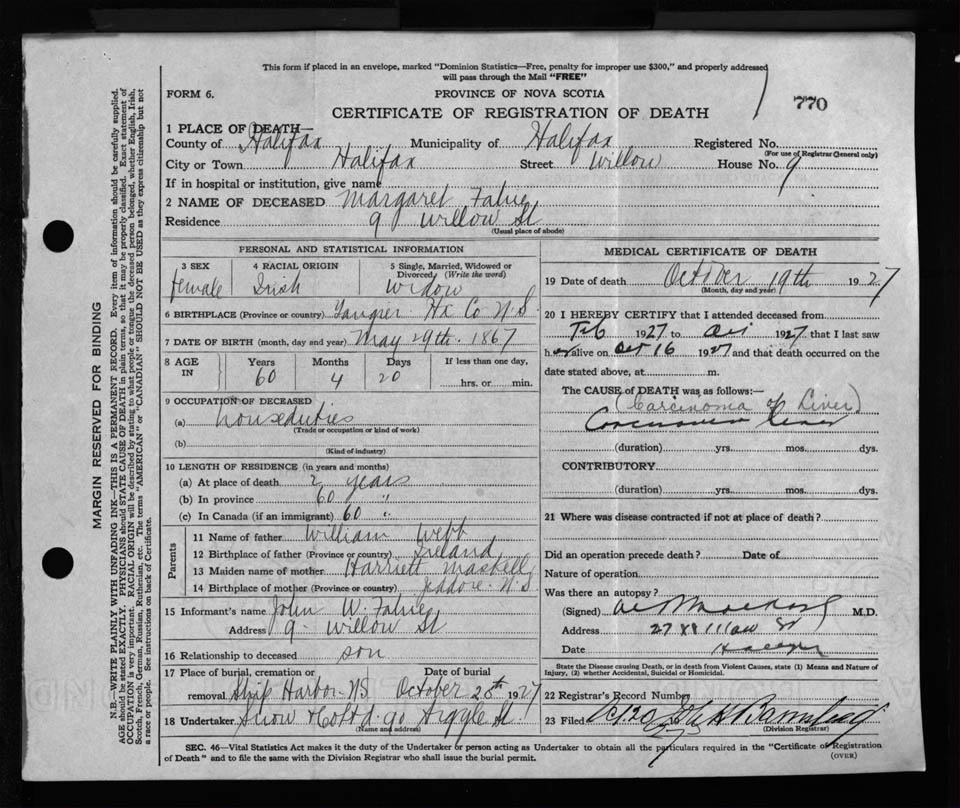 This form if placed in an envelope, marked "Dominion Statistics—Free, penalty for improper use $300," and properly addressed
will pass through the Mail "FREE"
FORM 6.
PROVINCE OF NOVA SCOTIA
770
CERTIFICATE OF REGISTRATION OF DEATH
1 PLACE OF DEATH—
County of Halifax Municipality of Halifax Registered No.
(For use of Registrar General only)
City or Town Halifax Street Willow House No. 9
If in hospital or institution, give name
2 NAME OF DECEASED Margaret Fahie
Residence 9 Willow St
(Usual place of abode)
PERSONAL AND STATISTICAL INFORMATION
3 SEX 4 RACIAL ORIGIN 5 Single, Married, Widowed or Divorced (Write the word)
female Irish Widow
6 BIRTHPLACE (Province or country) Tangier Hx Co N.S
7 DATE OF BIRTH (month, day and year) May 29th. 1867
8 AGE IN Years Months Days If less than one day,
60 4 20 hrs. or min.
9 OCCUPATION OF DECEASED
(a) houseduties
(Trade or occupation or kind of work)
(b)
(Kind of industry)
10 LENGTH OF RESIDENCE (in years and months)
(a) At place of death 2 years
(b) In province 60 "
(c) In Canada (if an immigrant) 60 "
Parents
11 Name of father William Webb
12 Birthplace of father (Province or country) Ireland
13 Maiden name of mother Harriett Maskell
14 Birthplace of mother (Province or country) Jeddore N.S
15 Informant's name John W. Fahie
Address 9 - Willow St
16 Relationship to deceased son
17 Place of burial, cremation or removal Ship Harbor NS Date of burial October 20th 1927
18 Undertaker Snow & Co Ltd. 90 Argyle St.
(Name and address)
MEDICAL CERTIFICATE OF DEATH
19 Date of death October 19th 1927
(Month, day and year)
20 I HEREBY CERTIFY that I attended deceased from
Feb 1927 to Oct 1927 that I last saw
her alive on Oct 16 1927 and that death occurred on the
date stated above, at m.
The CAUSE of DEATH was as follows:—
(Carcinoma of Liver)
Carcinoma Liver
(duration) yrs. mos. dys.
CONTRIBUTORY
(duration) yrs. mos. dys.
21 Where was disease contracted if not at place of death?
Did an operation precede death? Date of
Nature of operation
Was there an autopsy?
(Signed) M.D.
Address 27 Willow St
Date Halifax
State the Disease causing Death, or in death from Violent Causes, state (1) Means and Nature of
Injury, (2) whether Accidental, Suicidal or Homicidal.
22 Registrar's Record Number
23 Filed Oct 20
(Division Registrar)
SEC. 46—Vital Statistics Act makes it the duty of the Undertaker or person acting as Undertaker to obtain all the particulars required in the "Certificate of Registration
of Death" and to file the same with the Division Registrar who shall issue the burial permit.
(OVER)
MARGIN RESERVED FOR BINDING
N.B.—WRITE PLAINLY WITH UNFADING INK—THIS IS A PERMANENT RECORD. Every item of information should be carefully supplied.
AGE should be stated EXACTLY. PHYSICIANS should STATE CAUSE OF DEATH in plain terms, so that it may be properly classified. Exact statement of
OCCUPATION is very important. RACIAL ORIGIN will be described by stating to what people or tongue the deceased person belonged, whether English, Irish,
Scotch, French, German, Russian, Ruthenian, etc. The terms "AMERICAN" or "CANADIAN" SHOULD NOT BE USED as they express citizenship but not
a race or people. See instructions on back of Certificate.